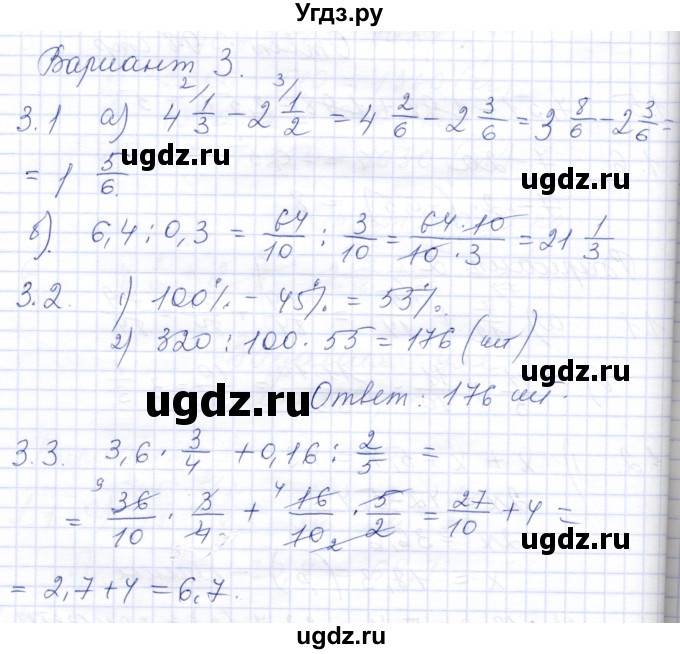 Угдз.ру
Вариант 3.
3.1 а) 4 1/3 - 2 1/2 = 4 2/6 - 2 3/6 = 3 8/6 - 2 3/6 =
ugdz.ru
ugdz.ru
= 1 5/6.
б) 6,4 : 0,3 = 64/10 : 3/10 = 64·10/10·3 = 21 1/3
3.2. 1) 100% - 45% = 55%.
2) 320 : 100 · 55 = 176 (шт)
ugdz.ru
ugdz.ru
Ответ: 176 шт.
3.3. 3,6 · 3/4 + 0,16 : 2/5 =
= 36/10 · 3/4 + 16/10 · 5/2 = 27/10 + 4 =
ugdz.ru
ugdz.ru
= 2,7 + 4 = 6,7.
ugdz.ru